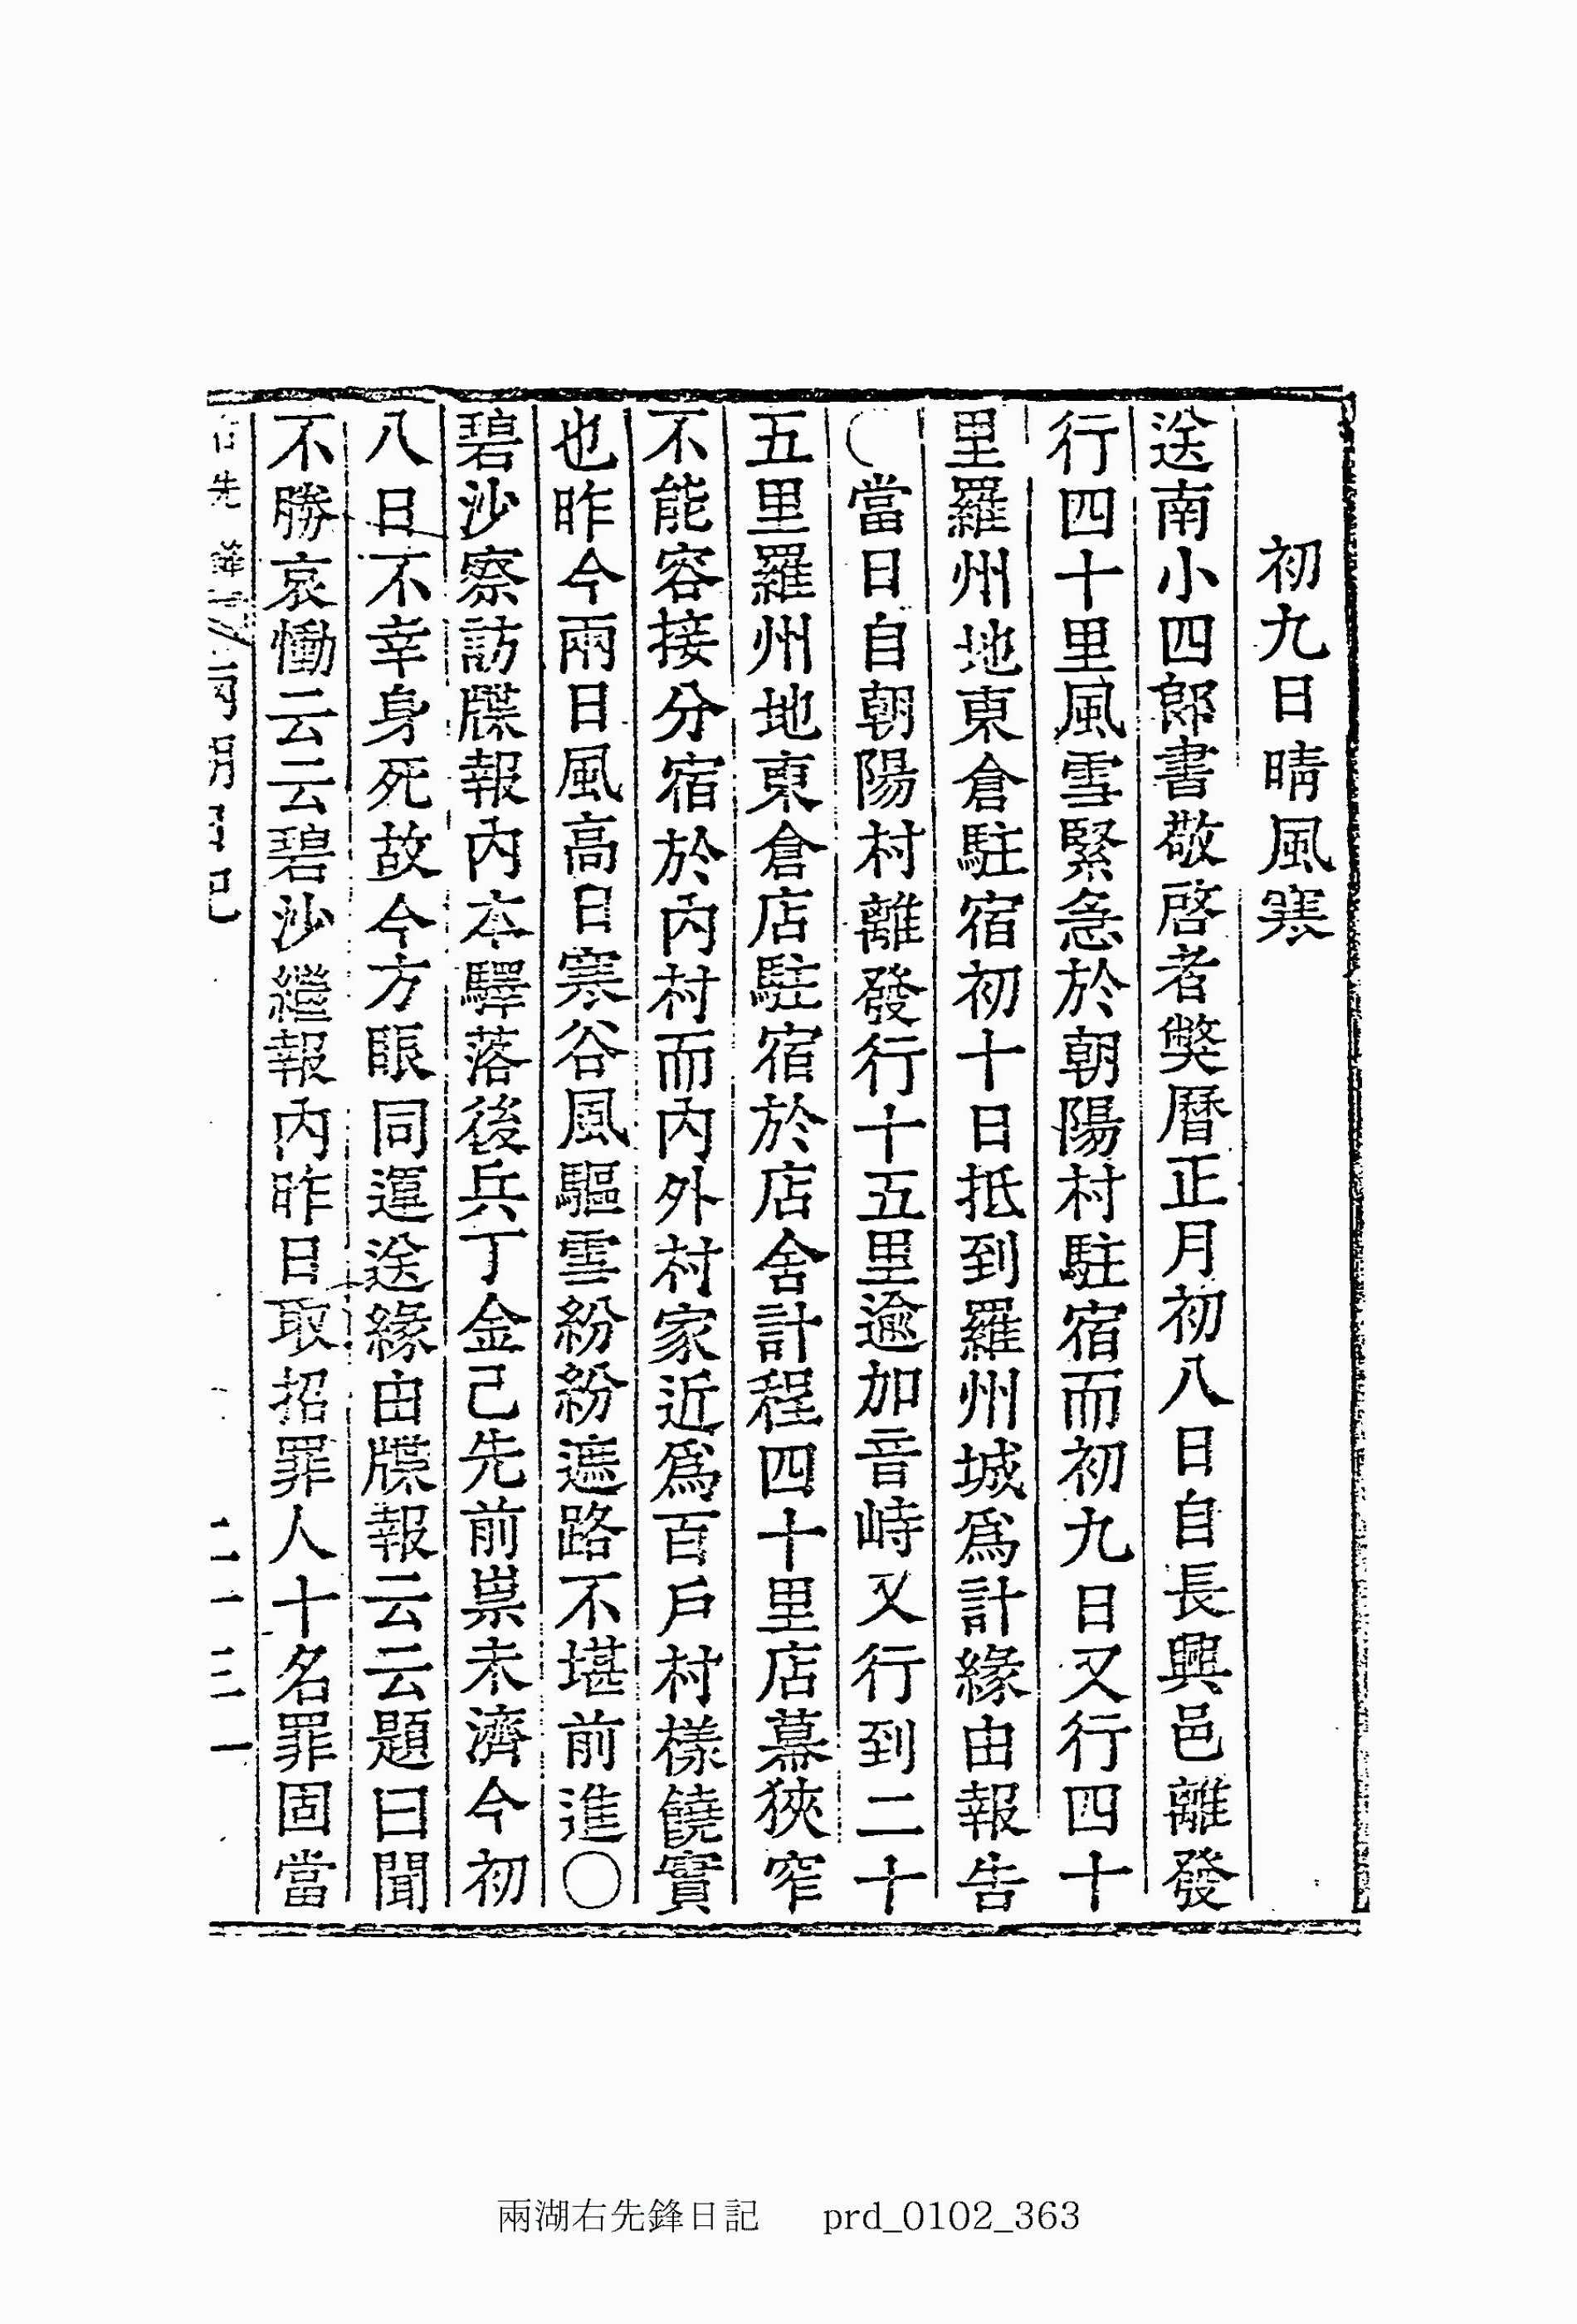 初九日晴風寒
送南小四郎書敬啓者弊曆正月初八日自長興邑離發
行四十里風雪緊急於朝陽村駐宿而初九日又行四十
里羅州地東倉駐宿初十日抵到羅州城爲計緣由報告
〇當日自朝陽村離發行十五里逾加音峙又行到二十
五里羅州地東倉店駐宿於店舍計程四十里店幕狹窄
不能容接分宿於內村而內外村家近爲百戶村樣饒實
也昨今兩日風高日寒谷風驅雪紛紛遮路不堪前進〇
碧沙察訪牒報內本驛落後兵丁金己先前祟未濟今初
八日不幸身死故今方賬同運送緣由牒報云云題曰聞
不勝哀慟云云碧沙繼報內昨日取招罪人十名罪固當
兩湖右先鋒日記 prd_0102_363